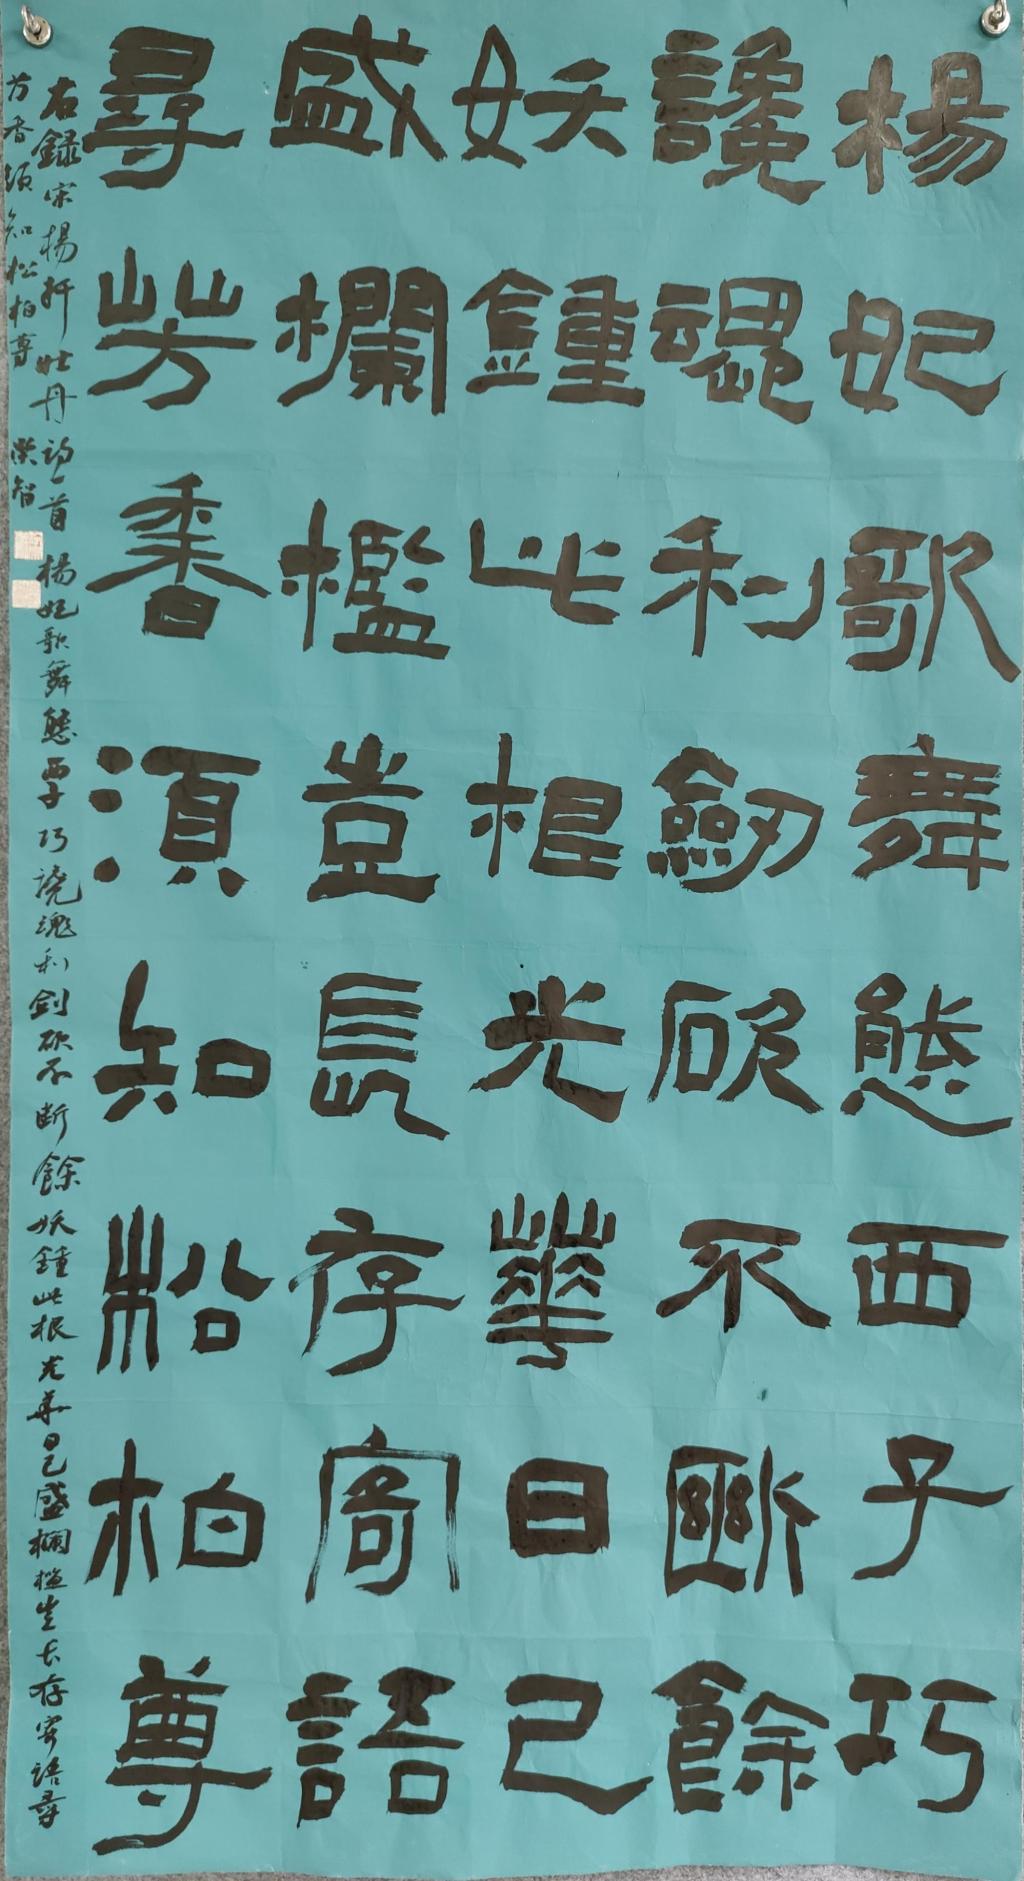 楊妃歌舞態西子巧
讒魂利劒斫不斷餘
妖鍾此根光華日已
盛欄檻豈長存寄語
尋芳香須知松柏尊
右録宋楊牡丹詩一首 楊妃歌舞態西子巧讒魂利劍斫不斷餘妖鍾此根光華日已盛欄檻豈長存寄語尋
芳香須知松柏尊 智